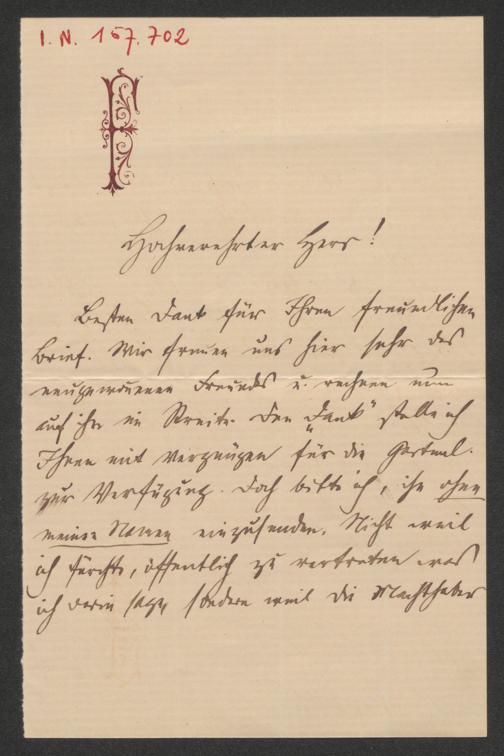 I. N. 157.702
F
Hochverehrter Herr!
Besten Dank für Ihren freundlichen
Brief. Wir freuen uns hier sehr des
neugewonnenen Freundes u. rechnen nun
auf ihn im Streite. Den „Dank" stelle ich
Ihnen mit Vergnügen für die
zur Verfügung. Doch bitte ich, ihn ohne
meinen Namen einzusenden. Nicht weil
ich fürchte, öffentlich zu vertreten was
ich darin sage, sondern weil die Machthaber